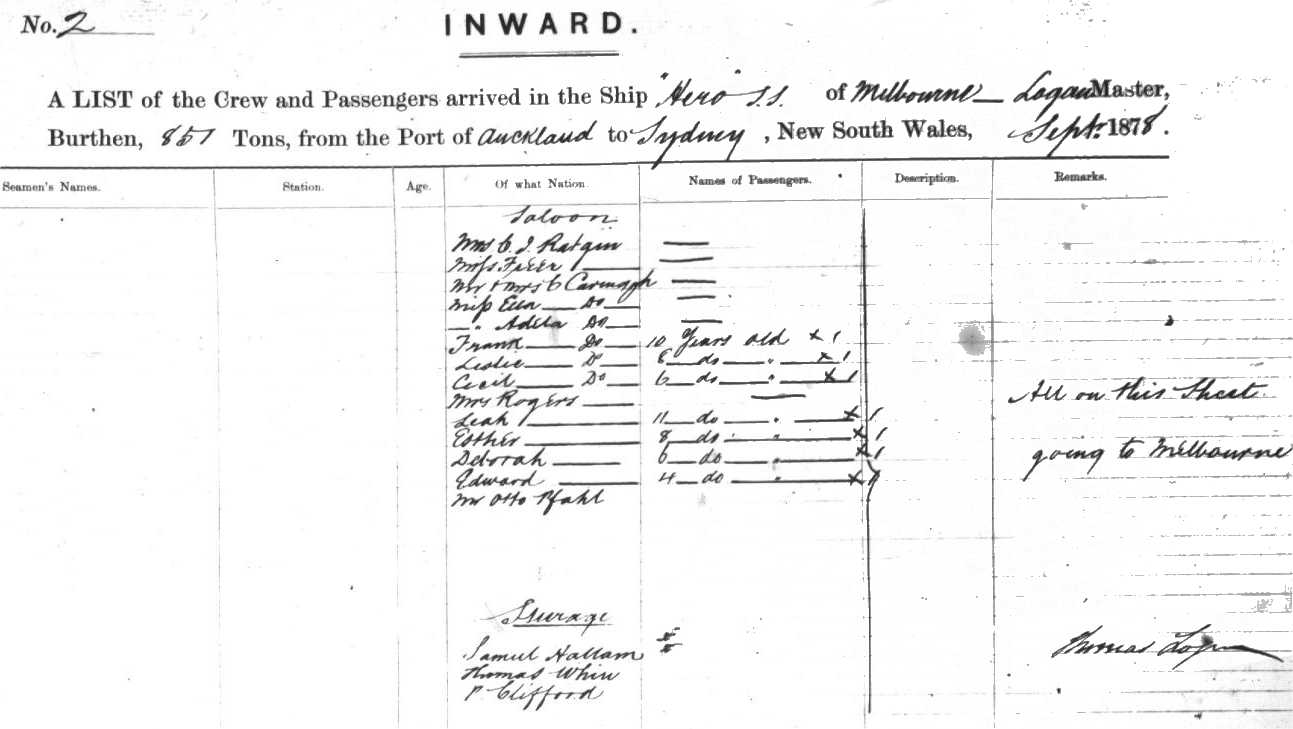 No. 2
INWARD.
A LIST of the Crew and Passengers arrived in the Ship "Hero" S.S. of Melbourne — Logan Master,
Burthen, 851 Tons, from the Port of Auckland to Sydney, New South Wales, Sept. 1878.
Seamen's Names. Station. Age. Of what Nation. Names of Passengers. Description. Remarks.
Saloon
Mrs C. J.
Miss
Mr & Mrs C Cavanagh
Miss Ella — Do —
— " Adela Do —
Frank — Do — 10 Years old x 1
Leslie — Do — 8 — do — " — x 1
Cecil — Do — 6 — do — " — x 1
Mrs Rogers —
Leah — 11 — do — " — x 1
Esther — 8 — do — " — x 1
Deborah — 6 — do — " — x 1
Edward — 4 — do — " — x 1
Mr Otto Pfahl
All on this Sheet
going to Melbourne
Steerage
Samuel Hallam
Thomas
P Clifford
Thomas Logan